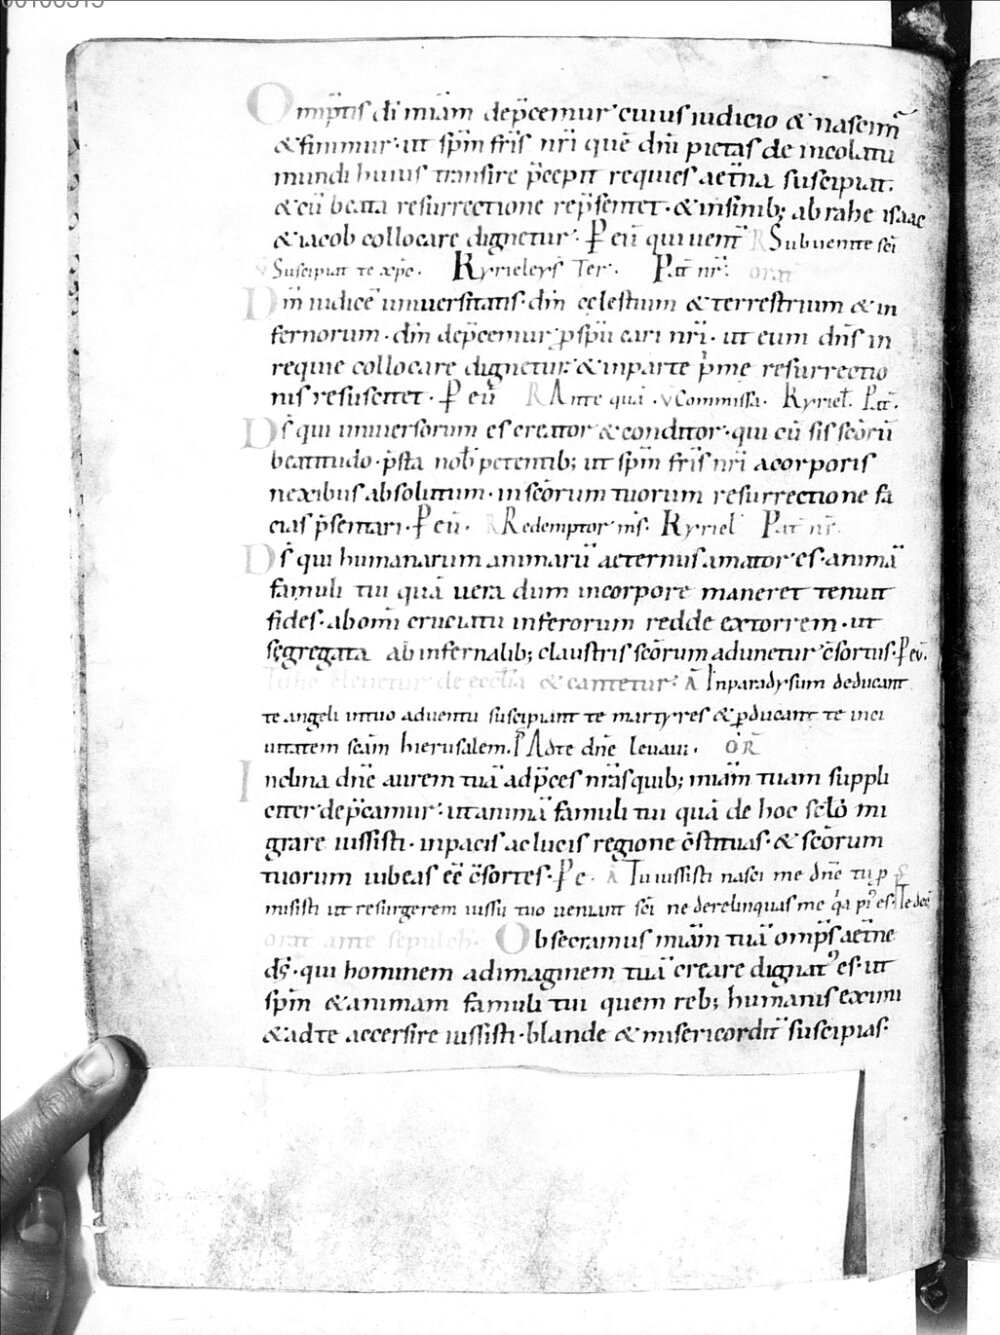 00100315
Omīptis dī miām dep̄cemur cuius iudicio & nascim̄
& finimur· ut sp̄m fr̄is nr̄i quē dn̄i pietas de incolatu
mundi huius transire p̄cepit requies aet̄na suscipiat·
& cū beata resurrectione rep̄sentet· & insinib; abrahe isaac
& iacob collocare dignetur· P eū qui uent̄ R Subuenite sc̄i
v Suscipiat te xp̄c· Kyrieleys Ter· Pat̄ nr̄· orat̄
Dm̄ iudicē uniuersitatis· dm̄ celestium & terrestrium & in
fernorum· dm̄ dep̄cemur p sp̄u cari nr̄i· ut eum dn̄s in
requie collocare dignetur· & inparte p̄me resurrectio
nis resuscitet· P eū R Ante quā· v Commissa· Kyriel̄· Pat̄·
Ds̄ qui uniuersorum es creator & conditor· qui cū sis sc̄orū
beatitudo· p̄sta nob̄ petentib; ut sp̄m fr̄is nr̄i acorporis
nexibus absolutum· in sc̄orum tuorum resurrectione fa
cias p̄sentari· P eū· R Redemptor m̄s· Kyriel̄ Pat̄ nr̄·
Ds̄ qui humanarum animarū aeternus amator es· animā
famuli tui quā uera dum incorpore maneret tenuit
fides· abomī cruciatu inferorum redde extorrem· ut
segregata ab infernalib; claustris sc̄orum adunetur c̄sortiis· P eū·
eleuetur de eccl̄ia & cantetur· A̅ Inparadysum deducant
te angeli intuo aduentu suscipiant te martyres & pducant te inci
uitatem sc̄am hierusalem. P Adte dn̄e leuaui· OR̄
Inclina dn̄e aurem tuā adp̄ces nr̄as quib; miām tuam suppli
citer dep̄camur· ut animā famuli tui quā de hoc sc̄lo mi
grare iussisti· inpacis ac lucis regione c̄stituas· & sc̄orum
tuorum iubeas ēē c̄sortes· P e· A̅ Tu iussisti nasci me dn̄e
misisti ut resurgerem iussu tuo ueniant sc̄i ne derelinquas me q̄a pi es· Te dec̄
orat̄ ante sepulch̄· Obsecramus miām tuā omp̄s aet̄ne
ds̄· qui hominem adimaginem tuā creare dignat' es· ut
sp̄m & animam famuli tui quem reb; humanis eximi
& adte accersire iussisti· blande & misericordit̄ suscipias·